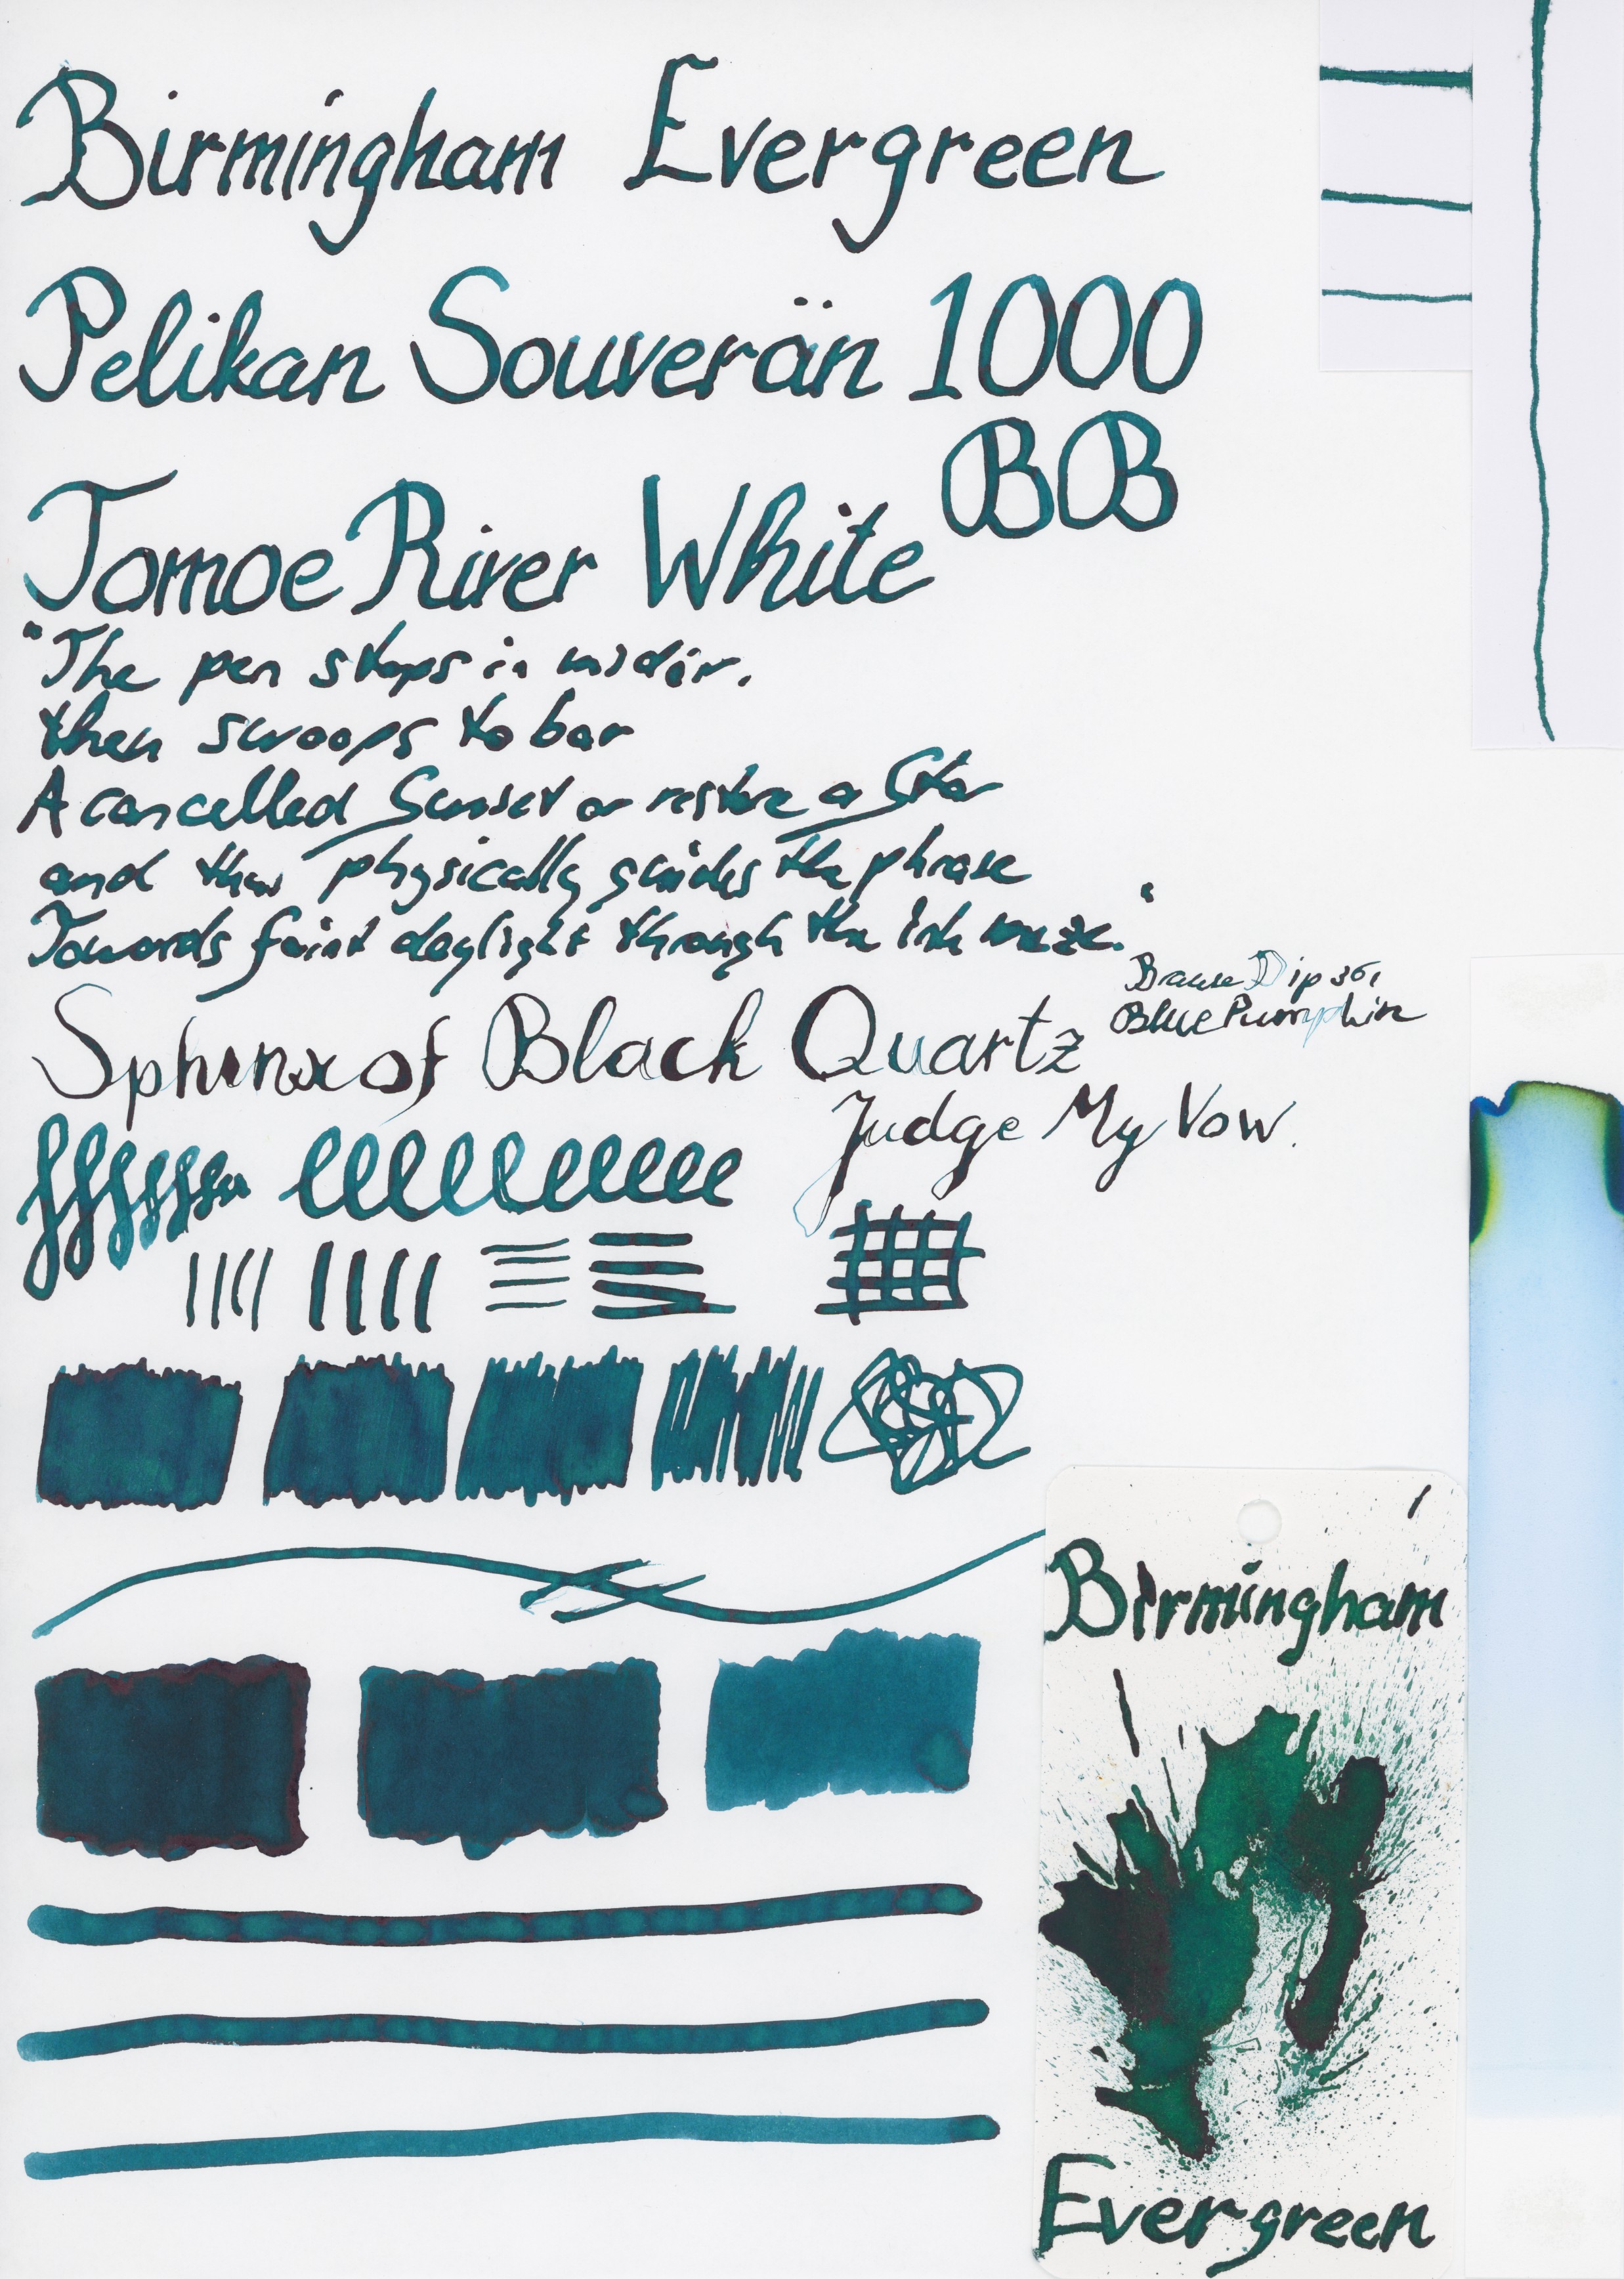 Birmingham Evergreen
Pelikan Souverän 1000
BB
Tomoe River White
"The pen stops in midair,
then swoops to bar
A cancelled Sunset or restore a Star
and thus physically guides the phrase
Towards faint daylight through the ink maze."
Brause Dip 361
Blue Pumpkin
Sphinx of Black Quartz
Judge My Vow.
Birmingham
Evergreen